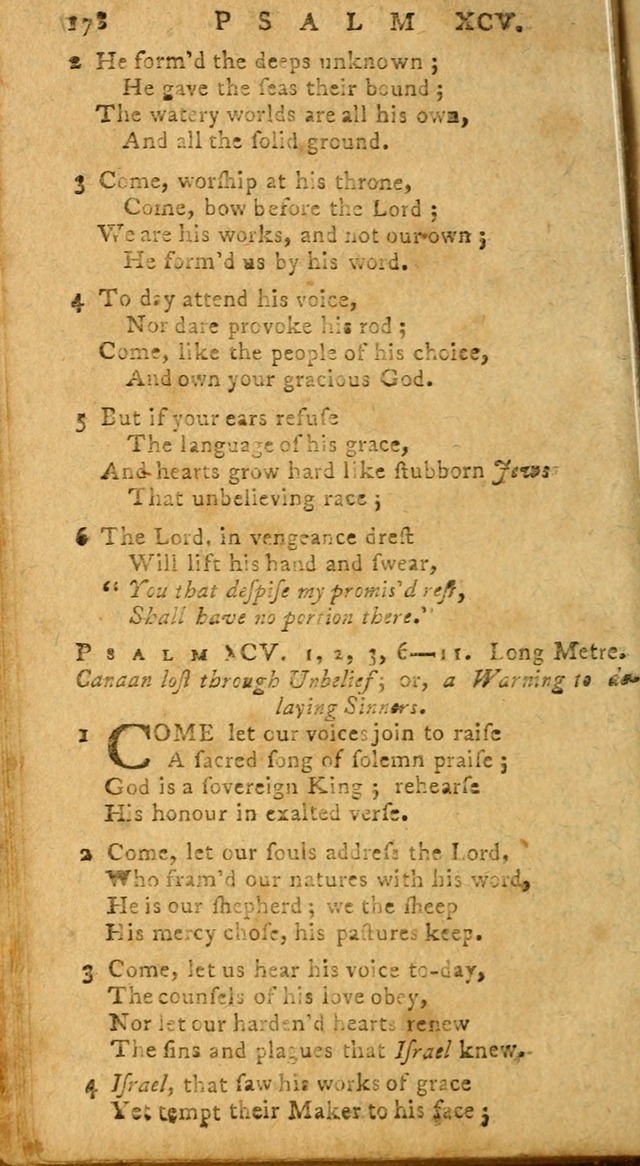 178 PSALM XCV.
2 He form'd the deeps unknown ;
He gave the ſeas their bound ;
The watery worlds are all his own,
And all the ſolid ground.
3 Come, worſhip at his throne,
Come, bow before the Lord ;
We are his works, and not our own ;
He form'd us by his word.
4 To day attend his voice,
Nor dare provoke his rod ;
Come, like the people of his choice,
And own your gracious God.
5 But if your ears refuſe
The language of his grace,
And hearts grow hard like ſtubborn Jews
That unbelieving race ;
6 The Lord, in vengeance dreſt
Will lift his hand and ſwear,
“ You that deſpiſe my promis'd reſt,
Shall have no portion there.”
PSALM XCV. 1, 2, 3, 6—11. Long Metre.
Canaan loſt through Unbelief; or, a Warning to de-
laying Sinners.
1 COME let our voices join to raiſe
A ſacred ſong of ſolemn praiſe ;
God is a ſovereign King ; rehearſe
His honour in exalted verſe.
2 Come, let our ſouls addreſs the Lord,
Who fram'd our natures with his word,
He is our ſhepherd ; we the ſheep
His mercy choſe, his paſtures keep.
3 Come, let us hear his voice to-day,
The counſels of his love obey,
Nor let our harden'd hearts renew
The ſins and plagues that Iſrael knew.
4 Iſrael, that ſaw his works of grace
Yet tempt their Maker to his face ;